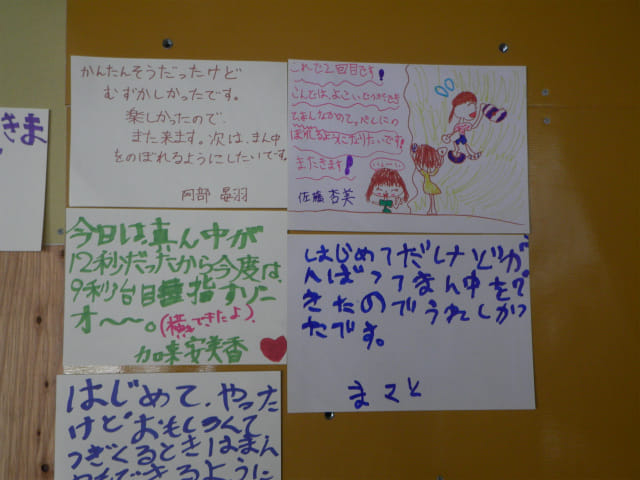 きま
かんたんそうだったけど
むずかしかったです。
楽しかったので、
また来ます。次は、まん中
をのぼれるようにしたいです。
阿部 晏羽
これで2回目です!
こんどは、よこい
のぼれるようになりたいです!
またきます!
佐藤 杏美
今日は、真ん中が
12秒だったから今度は、
9秒台目指すゾニ
オ〜〜。(横できたよ)
加来安美香
はじめてだしけどが
んばってまん中をで
きたのでうれしかっ
たです。
まさと
はじめて、やった
けどおもしろくて
つぎくるときはまん
できるように